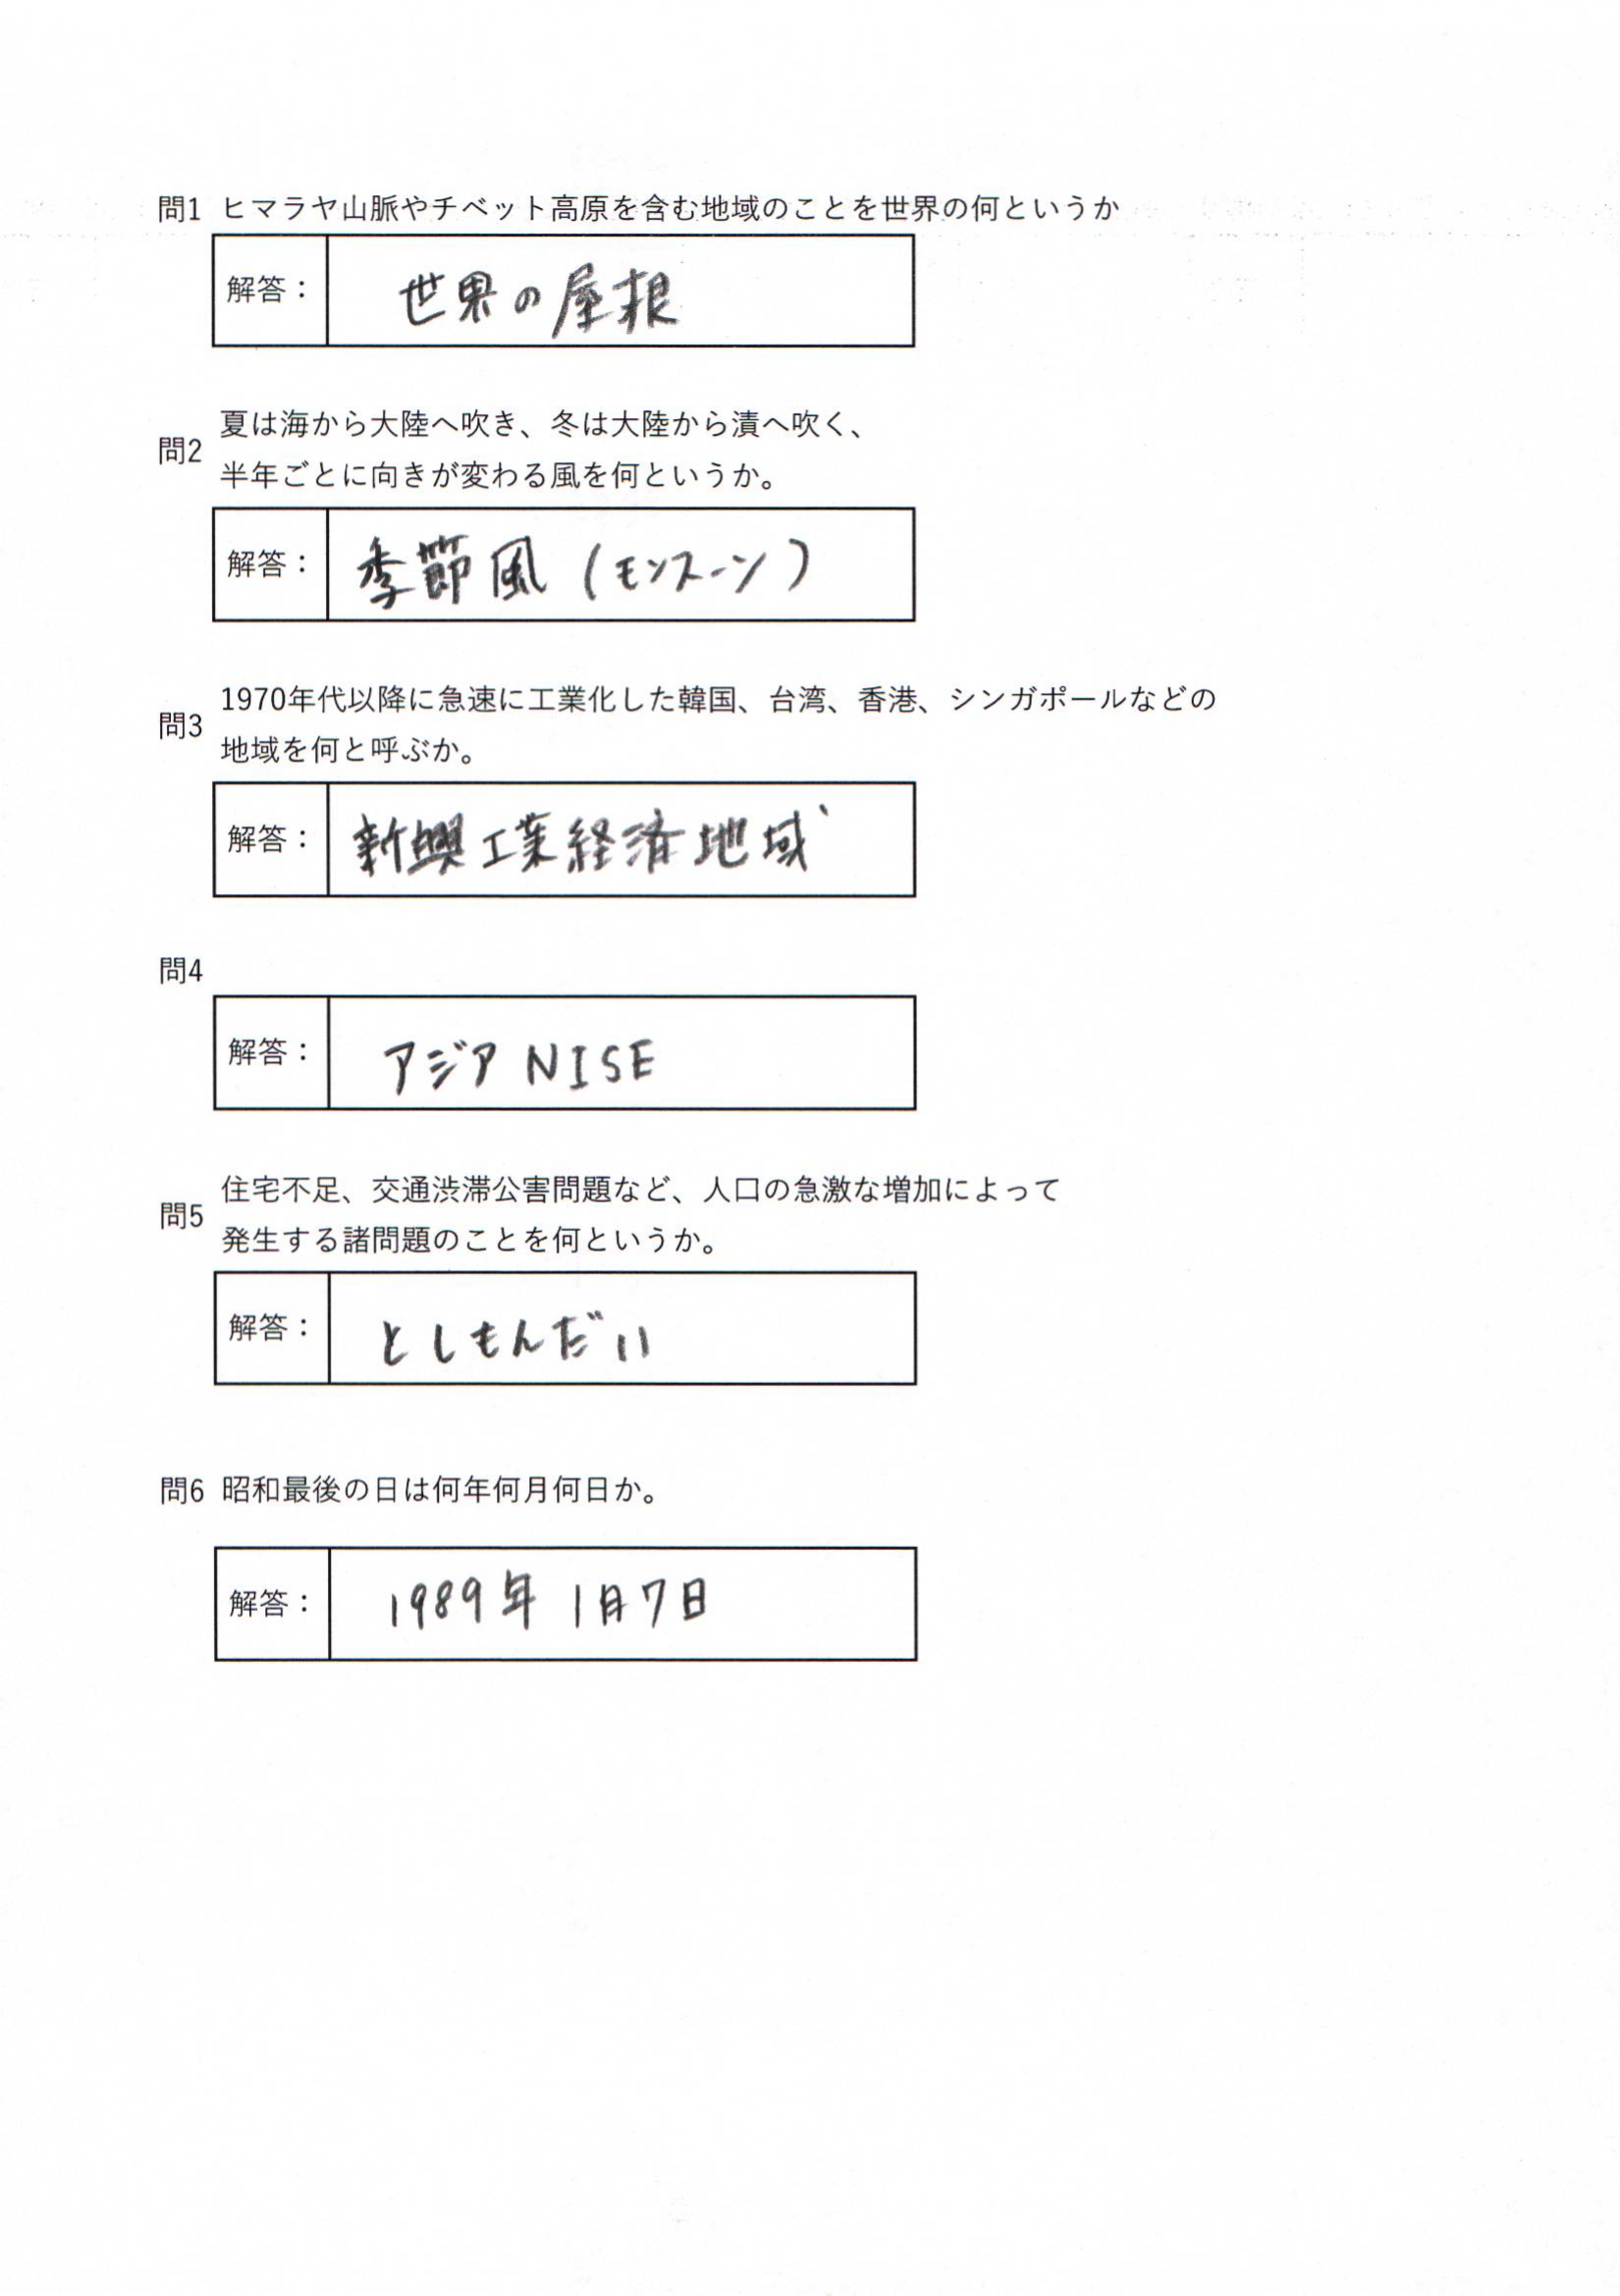 問1 ヒマラヤ山脈やチベット高原を含む地域のことを世界の何というか
解答： 世界の屋根
問2 夏は海から大陸へ吹き、冬は大陸から漬へ吹く、
半年ごとに向きが変わる風を何というか。
解答： 季節風（モンスーン）
問3 1970年代以降に急速に工業化した韓国、台湾、香港、シンガポールなどの
地域を何と呼ぶか。
解答： 新興工業経済地域
問4
解答： アジア NISE
問5 住宅不足、交通渋滞公害問題など、人口の急激な増加によって
発生する諸問題のことを何というか。
解答： としもんだい
問6 昭和最後の日は何年何月何日か。
解答： 1989年 1月7日